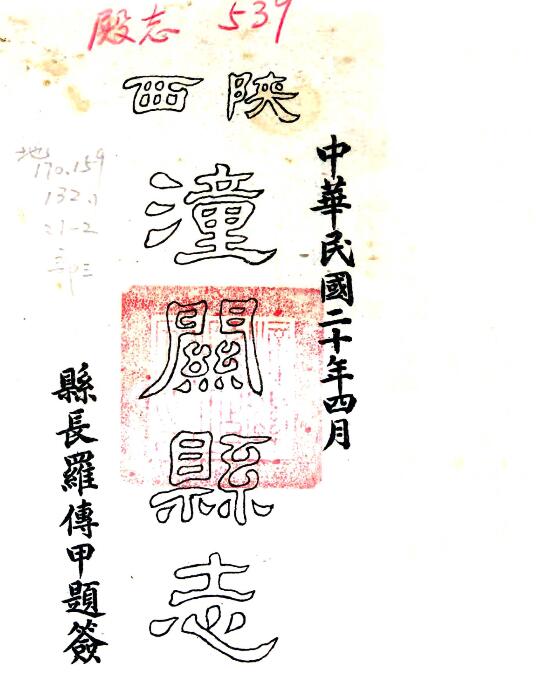 殿志 539
陝西
中華民國二十年四月
潼關縣志
縣長羅傳甲題簽
170.159
132.1
21-2